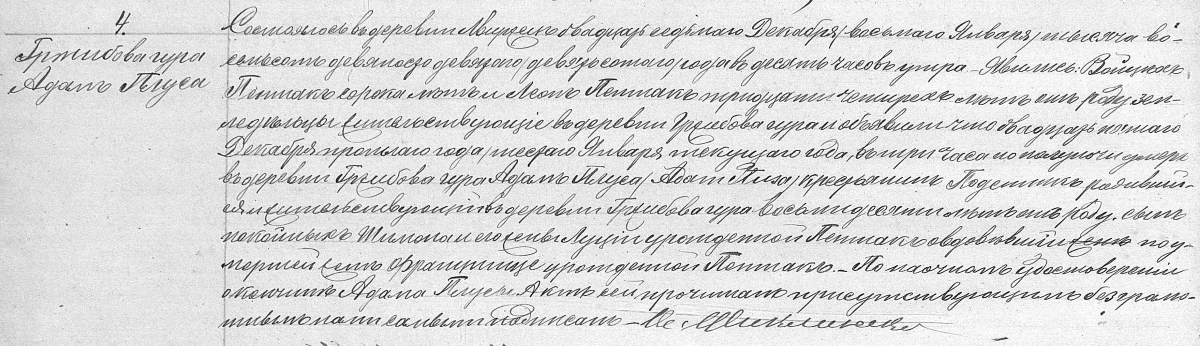 4.
Гржибова гура
Адамъ Плуса
Состоялось въ деревни Миржецъ двадцать седьмаго Декабря/восьмаго Января/тысяча во-
семьсотъ девяносто девятаго/девятьсотаго/года въ десять часовъ утра. – Явились: Войцехъ
Пентакъ сорока лѣтъ и Леонъ Пентакъ тридцати четырехъ лѣтъ отъ роду зем-
ледѣльцы жительствующіе въ деревни Гржибова гура и объявили что двадцать пятаго
Декабря прошлаго года/шестаго Января текущаго года, въ три часа по полуночи умеръ
въ деревни Гржибова гура Адамъ Плуса/Adam Pluza/крестьянинъ родивший-
ся и жительствующій въ деревни Гржибова гура восьмидесяти лѣтъ отъ роду, сынъ
покойныхъ Шимона и его жены Луціи урожденной Пентакъ овдовѣвшій по у-
мершей женѣ Францишце урожденной Пентакъ. – По наочномъ удостовереніи
о кончинѣ Адама Плусы. Актъ сей прочитанъ присутствующимъ безграмо-
тнымъ нами самыми подписанъ –